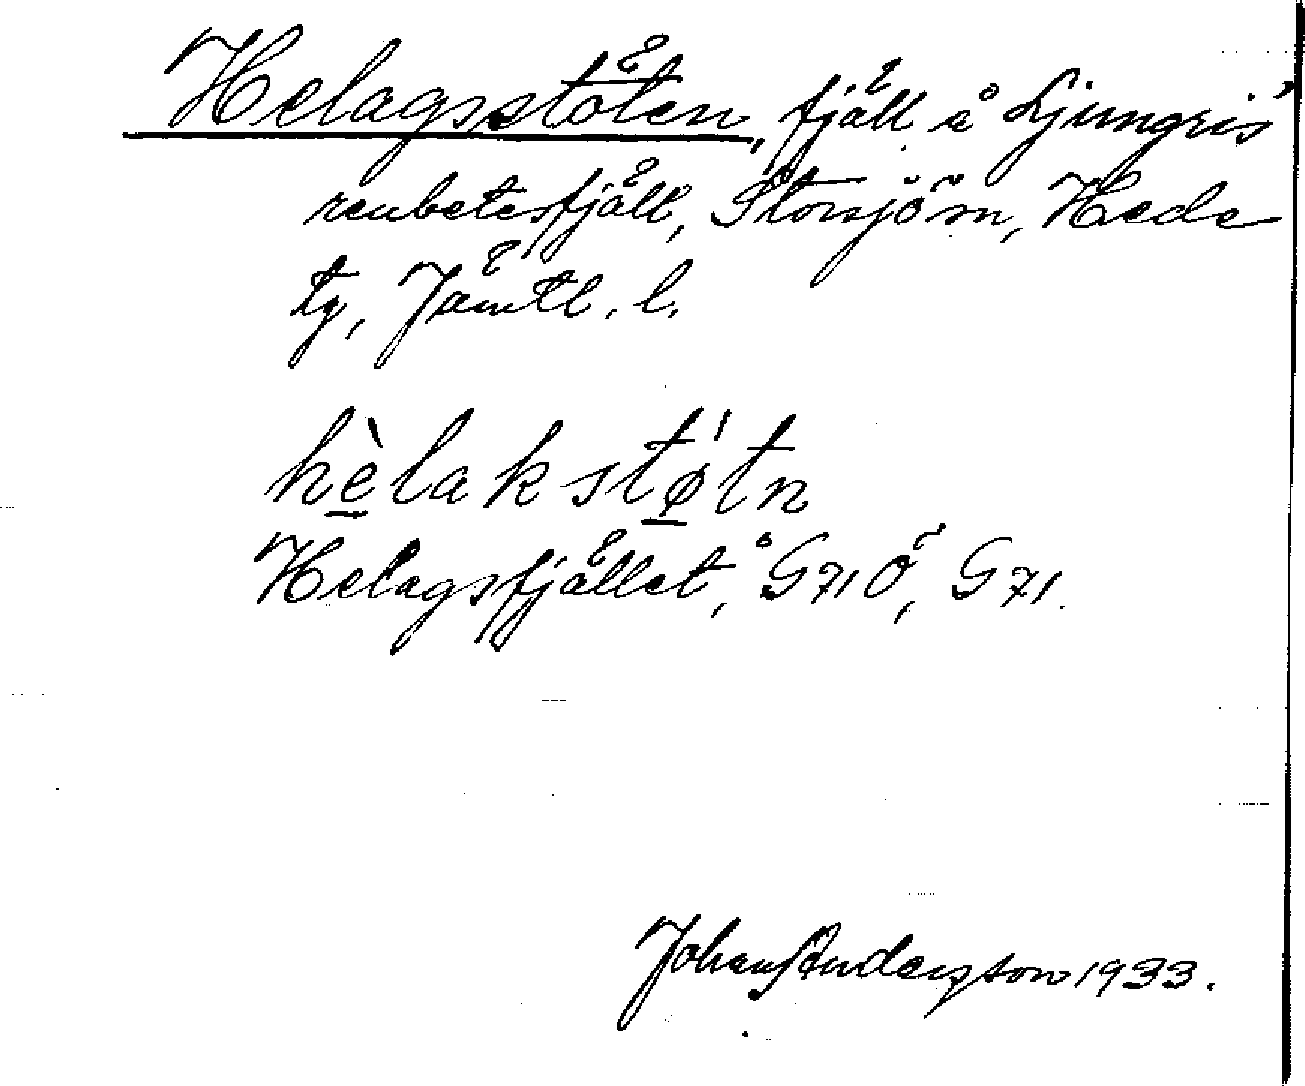 Helagsstöten, fjäll å Ljungris
renbetesfjäll, Storsjö sn, Hede
tg, Jämtl. l.
hèlakstø'tn
Helagsfjället, G71Ö, G71.
Johan Anderzson 1933.